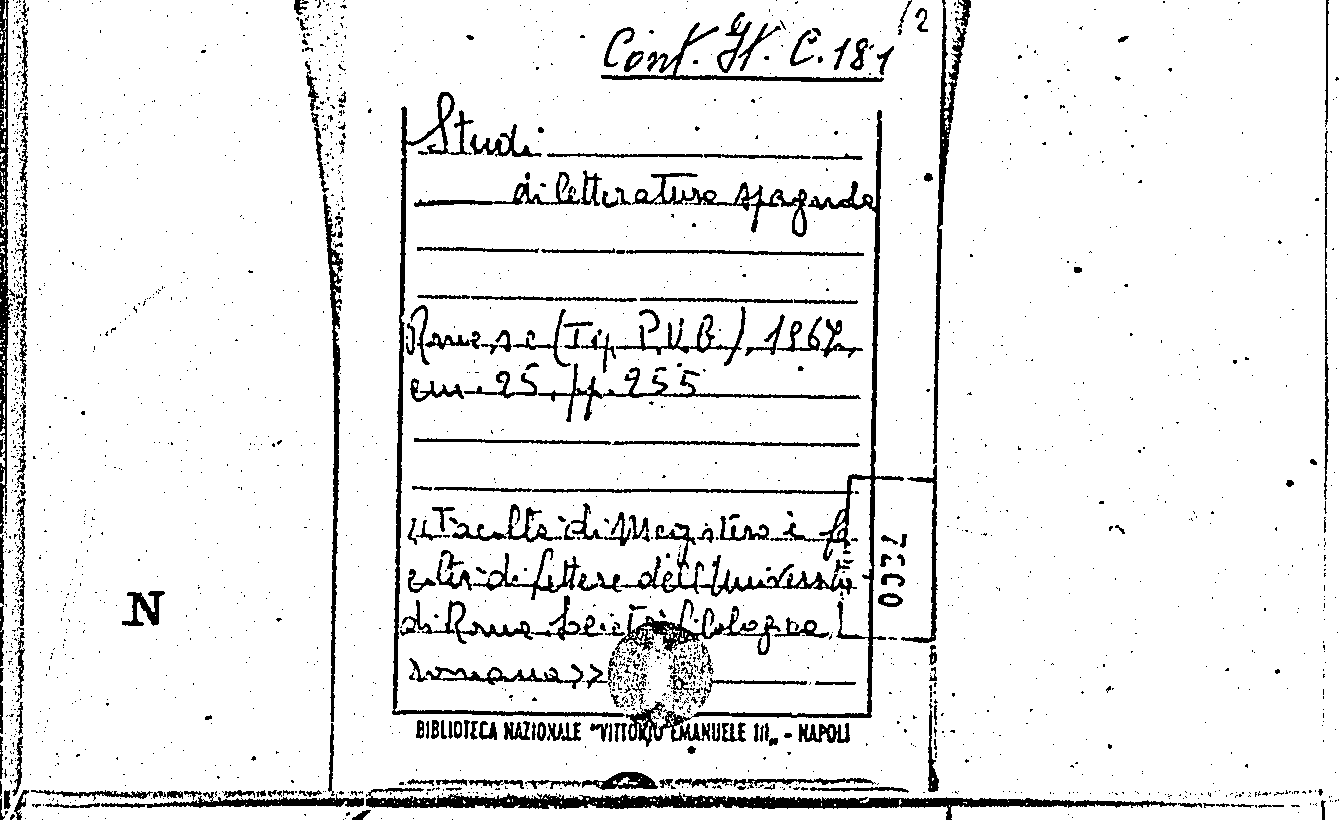 Cont. It. C. 181 /2
Studi
di letteratura spagnola
Roma, s. e. (Tip. P.U.G.), 1967,
cm. 25, pp. 255
«Facoltà di Magistero e fa
coltà di Lettere dell'Università
di Roma Società filologica
romana»
0032
N
BIBLIOTECA NAZIONALE "VITTORIO EMANUELE III„ - NAPOLI